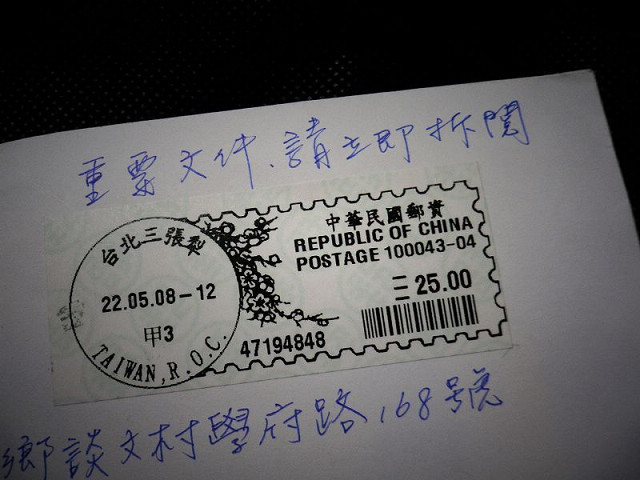 重要文件、請立即拆閱
台北三張犁
22.05.08-12
甲3
TAIWAN, R.O.C.
中華民國郵資
REPUBLIC OF CHINA
POSTAGE 100043-04
25.00
47194848
鄉談文村學府路168號